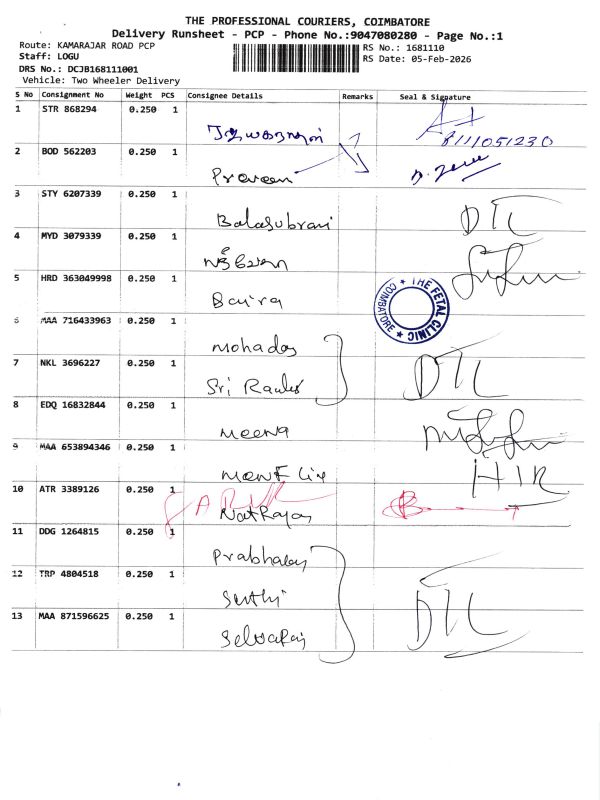 THE PROFESSIONAL COURIERS, COIMBATORE
Delivery Runsheet - PCP - Phone No.:9047080280 - Page No.:1
Route: KAMARAJAR ROAD PCP
RS No.: 1681110
Staff: LOGU
RS Date: 05-Feb-2026
DRS No.: DCJB168111001
Vehicle: Two Wheeler Delivery
S No Consignment No Weight PCS Consignee Details Remarks Seal & Signature
1 STR 868294 0.250 1
8111051230
2 BOD 562203 0.250 1
Praveen
3 STY 6207339 0.250 1
Balasubrani DTC
4 MYD 3079339 0.250 1
5 HRD 363049998 0.250 1
THE FETAL CLINIC
COIMBATORE
6 MAA 716433963 0.250 1
Mohadas
7 NKL 3696227 0.250 1
Sri DTC
8 EDQ 16832844 0.250 1
Meena
9 MAA 653894346 0.250 1
10 ATR 3389126 0.250 1
NatRajan
11 DDG 1264815 0.250 1
12 TRP 4804518 0.250 1
Suthi DTC
13 MAA 871596625 0.250 1
SelvaRaj